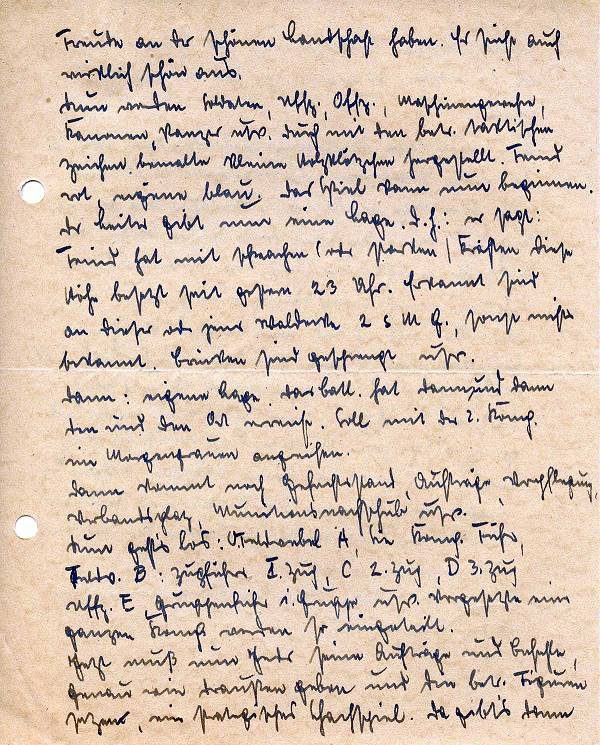 Freude an der schönen Landschaft haben. Er sieht auch
wirklich schön aus.
Nun werden Soldaten, Uffz., Offz., Maschinengewehre,
Kanonen, Panzer usw. durch mit den betr. taktischen
Zeichen bemalte kleine Holzklötzchen hergestellt. Feind
rot, eigene blau. Das Spiel kann nun beginnen.
Der Leiter gibt nun eine Lage. d.h.: er sagt:
Feind hat mit schwachen (oder starken) Kräften diese
Höhe besetzt seit gestern 23 Uhr. Erkannt sind
an dieser oder jener Waldecke 2 s M G., sonst nichts
bekannt. Brücken sind gesprengt usw.
Dann: eigene Lage. Das Batl. hat dann und dann
den und den Ort erreicht. Soll mit der 2. Komp.
im Morgengrauen angreifen.
Dann kommt noch Gefechtsstand, Aufträge, Verpflegung,
Verbandsplatz, Munitionsnachschub usw.
Nun geht's los: O.Feldwebel A, Komp. Führ,
Feldw. B: Zugführer I. Zug, C 2. Zug, D 3. Zug
Uffz. E, Gruppenführer 1. Gruppe usw. Vorgesetzte einer
ganzen Komp. werden so eingeteilt.
Jetzt muß nun jeder seine Aufträge und Befehle,
genau wie draußen geben und die betr. Figuren
setzen, ein strategisches Schachspiel. Da gibt's dann